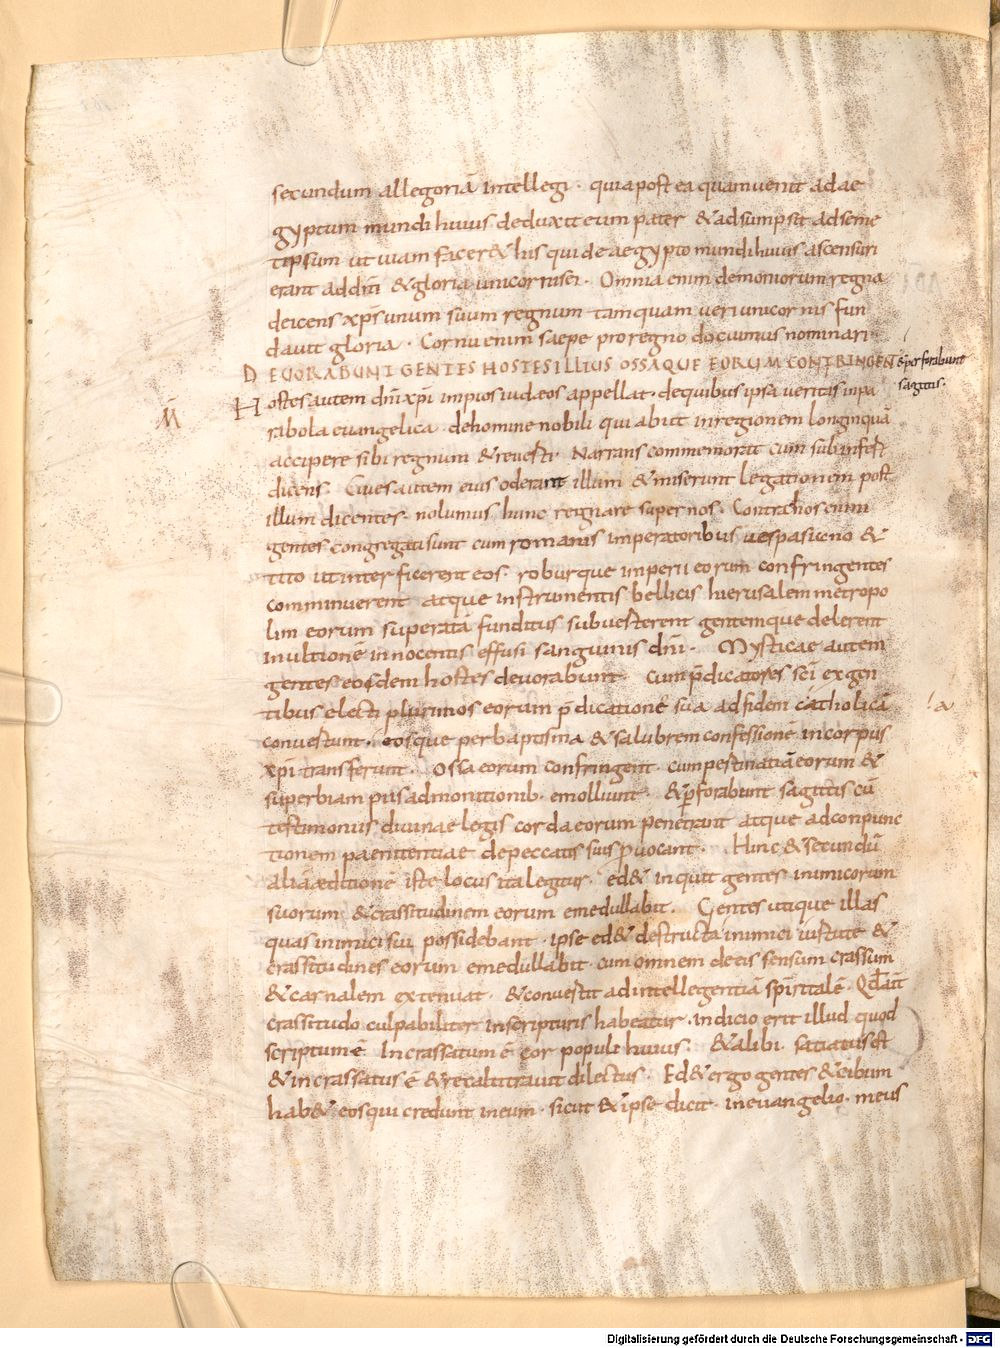 secundum allegoriā intellegi · quia post ea quam venit ad ae
gyptum mundi huius deduxit eum pater & adsumpsit ad seme
tipsum ut viam facer& his qui de aegypto mundi huius ascensuri
erant additi & gloria unicornis ei · Omnia enim demoniorum regna
deicens xp̄s unum suum regnum tamquam veri unicornis fun
davit gloria · Cornu enim saepe pro regno docuimus nominari ·
DEVORABUNT GENTES HOSTES ILLIUS OSSAQUE EORUM CONFRINGENT & perforabunt
sagittis.
Hostes autem dn̄i xp̄i impios iudaeos appellat · de quibus ipsa veritas in pa
M̄
rabola evangelica · de homine nobili qui abiit in regionem longinquā
accipere sibi regnum & reverti · Narrans commemorat cum subinfert
dicens · Cives autem eius oderant illum & miserunt legationem post
illum dicentes · nolumus hunc regnare super nos · Contra hos enim
gentes congregati sunt cum romanis imperatoribus vespasiano &
tito ut interficerent eos · roburque imperii eorum confringentes
comminuerent atque instrumentis bellicis hierusalem metropo
lim eorum superatā funditus subverterent gentemque delerent
in ultionē innocentis effusi sanguinis dn̄i · Mysticae autem
gentes eosdem hostes devorabunt · cum p̄dicatores sc̄i ex gen
tibus electi plurimos eorum p̄dicatione sua ad fidem catholicā
! a
convertunt · eosque per baptisma & salubrem confessionē in corpus
xp̄i transferunt · Ossa eorum confringent · cum pertinatiā eorum &
superbiam piis admonitionib · emolliunt · & p̄forabunt sagittis cū
testimoniis divinae legis corda eorum penetrant atque ad conpunc
tionem paenitentiae de peccatis suis p̄vocant · Hinc & secundū
aliā aeditionē iste locus ita legitur · ed& inquit gentes inimicorum
suorum & crassitudinem eorum emedullabit · Gentes utique illas
quas inimici sui possidebant · ipse ed& destructa inimici virtute &
crassitudines eorum emedullabit · cum omnem de eis sensum crassum
& carnalem extenuat · & convertit ad intellegentiā sp̄ritalē · Qd̄ aūt
crassitudo culpabiliter in scripturis habeatur · indicio erit illud quod
scriptum ē Incrassatum ē cor populi huius · & alibi · satiatus est
& incrassatus ē & recalcitravit dilectus · Ed& ergo gentes & cibum
hab& eos qui credunt in eum · sicut & ipse dicit · in evangelio · meus
Digitalisierung gefördert durch die Deutsche Forschungsgemeinschaft - DFG